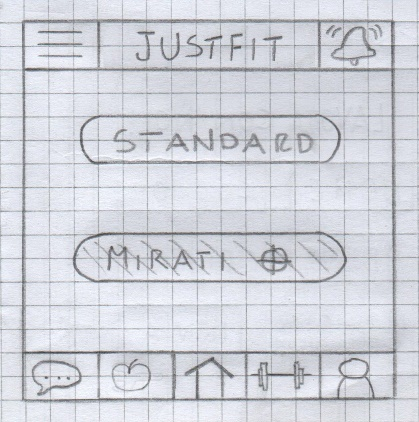 JUSTFIT
STANDARD
MIRATI